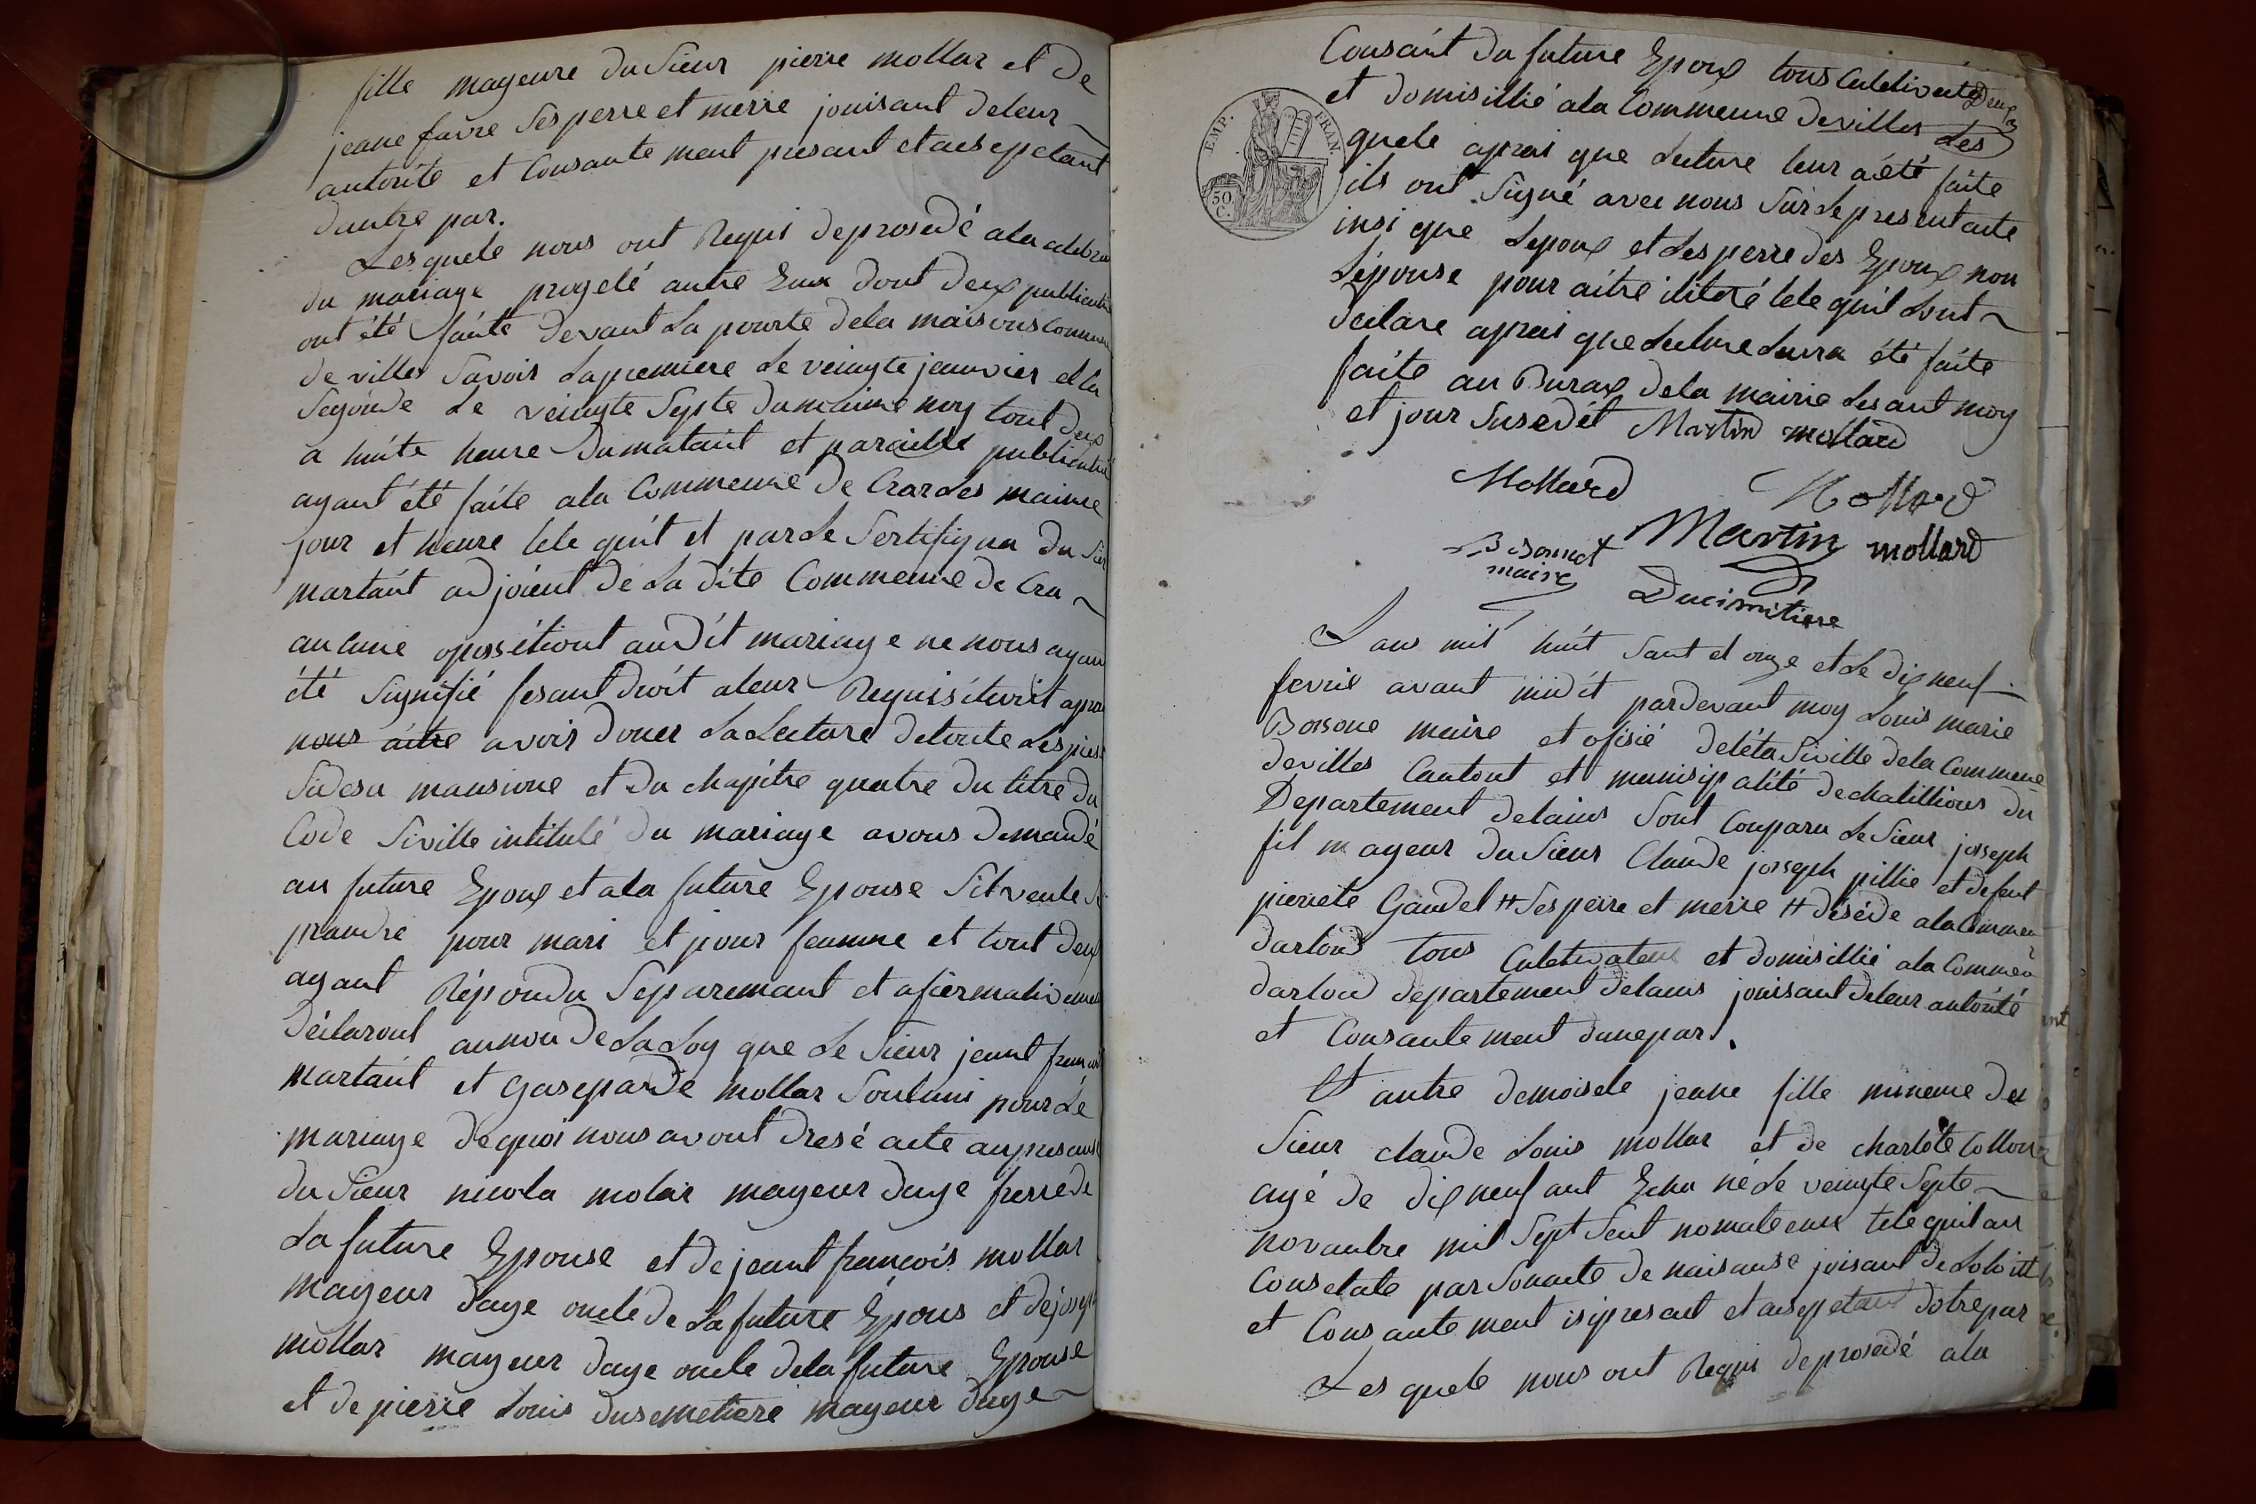 fille mageure du Sieur pierre mollar et De
jeane favre Ses perre et merre jouisant deleur
autorité et Consantement presant et aesepetant
dautre par.
Les quele nous ont Requi deprosedé ala celebra
du mariage progeté autre Eux dont deux publication
ont été faite devant La pourte dela maisons Commune
de villes Savoir La premiere Le veingte jeanvier et la
Segonde Le veingte Septe du maime moy tout deux
a huite heure du mataint et paraille publication
ayant été faite ala Commeune de Craz Les maime
jour et heure tele quit et par Le Sertifiqua du Sieur
martaint adjoient de La dite Commeune de Cra
aucune oposétiont audit mariage ne nous ayant
été Signifié fesant droit aleur Requisitoirt aprai
nous aitre avoir Doner La Lecture detoute Les piese
Sidesu mansione et du chapitre quatre du titre du
Code Siville intitulé du mariage avons Demandé
au future Epoux et ala future Epouse Sil veule Si
prandre pour mari et pour feamme et tout deux
ayant Répondu Separemant et afiermativement
Déclaront aunon de La Loy que Le Sieur jeant francois
martaint et gaseparde mollar Sont uni pour Le
mariage de quoi nous avont dresé acte aupresanse
du Sieur nicola molar mayeur dage frerre de
La future Epouse et de jeant francois mollar
mayeur dage oncle de La future Epous et de joseph
mollar mayeur dage oncle dela future Epouse
et de pierre Louis dusemetiere mayeur dage
Cousaint du future Epoux tous Culetivateur Deux
et domisillié ala Commeune de villes Les
quele aprai que Lecture leur a été faite
ils ont Signé avec nous Sur Le present acte
insi que Lepoux et Les perre des Epoux non
Lépouse pour aitre ilitéré tele quil Lont
declare aprai que Lecture Leura été faite
faite au Buraux dela mairie Les ant moy
et jour Susedét Martin mollard
EMP. FRAN.
50 C.
Mollard Mollard
Bosonnet maire Martin mollard
Ducimitiere
L ans mil huit Sant et onze et Le dix neuf
fevrie avant midit pardevant moy Louis marie
Bosone maire et ofisié deléta Siville dela Commeune
de villes Cantont et munisipalité de chatillions du
Departement delains Sont Conparu Le Sieur joseph
fil mayeur du Sieur Claude joseph pillie et defeut
pierrete Gaudet # Ses perre et merre # désédé ala Commeu
darlod tous Culetivateur et domisillié ala Commeu
darlod departement delains jouisant deleur autorité
et Consantement dunepar.
Et autre demoisele jeane fille mineure du
Sieur claude Louis mollar et de charlote Collon
agé de dix neuf ant Echu né Le veingte Septe
novanbre mil Sept Sent nomate eun tele quil an
Consetate par Son acte de naisanse joisant de
et Consantement isi presant et aesepetant dotrepar
Les quele nous ont Requi deprosedé ala